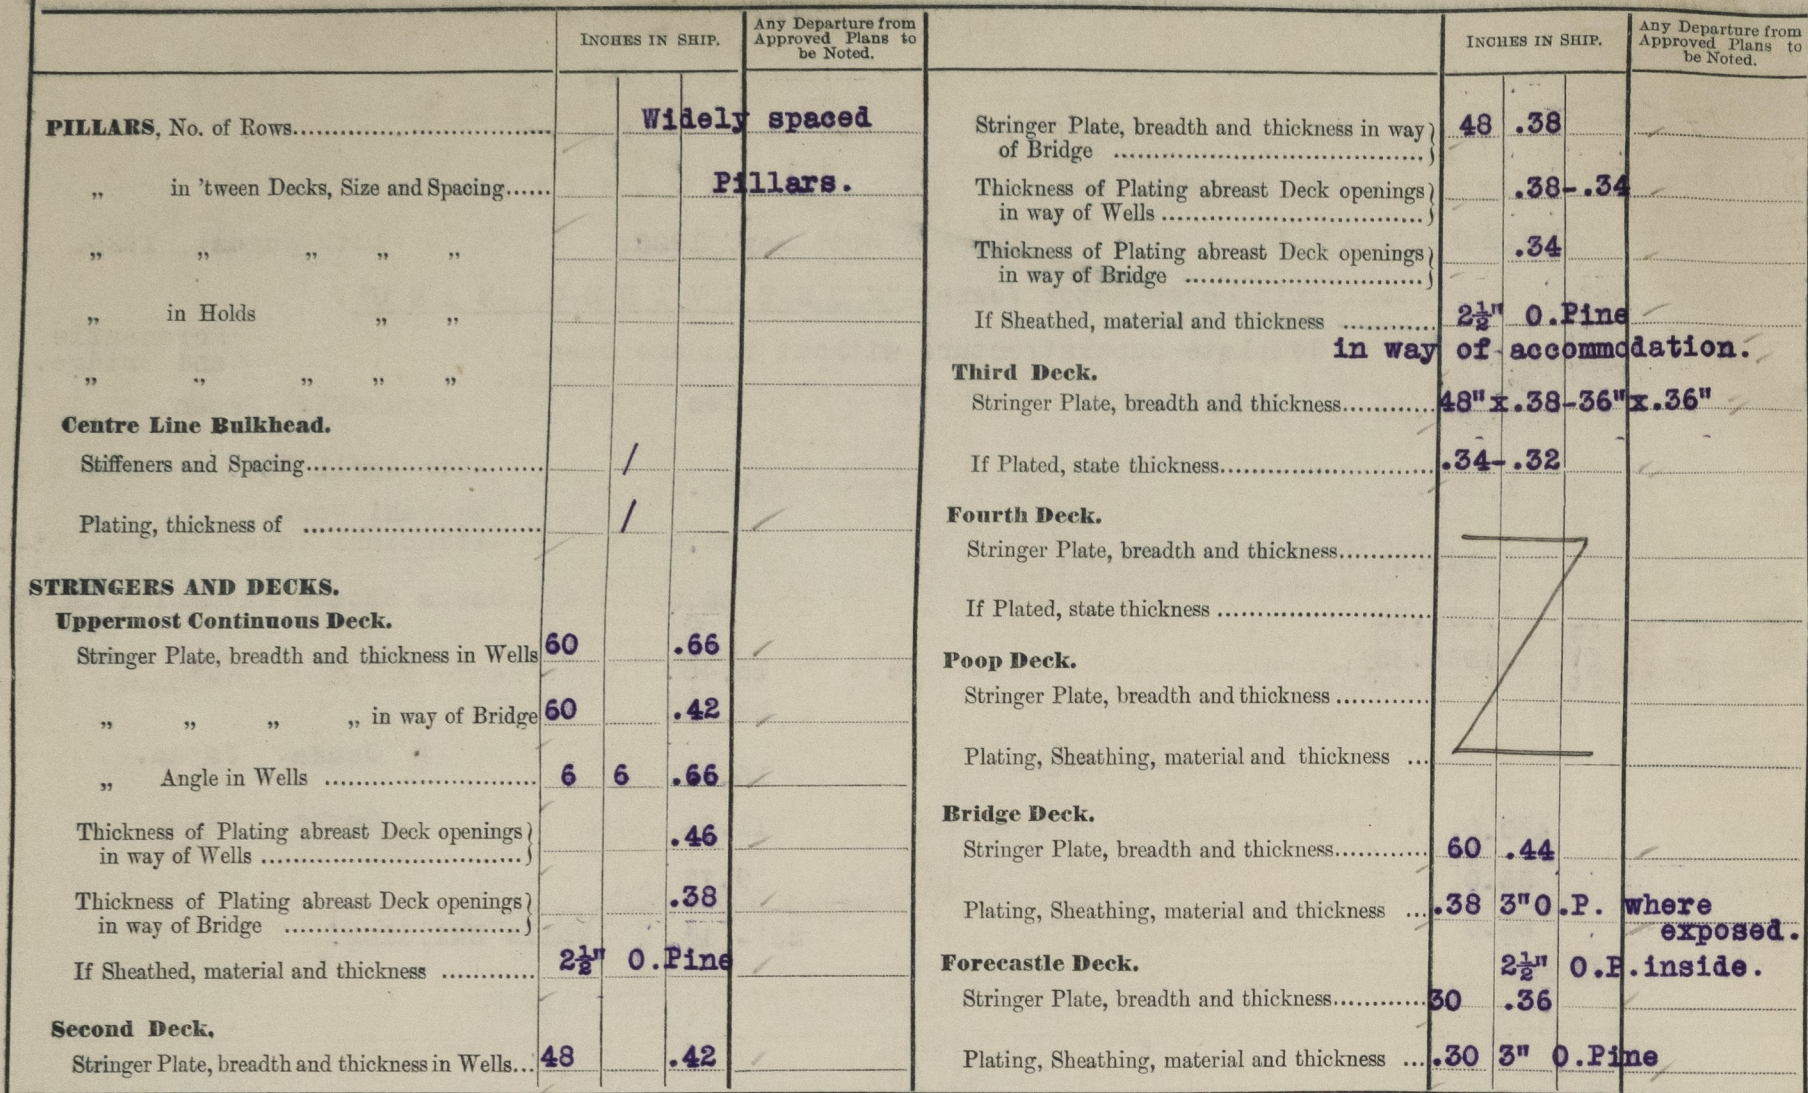 INCHES IN SHIP.
Any Departure from
Approved Plans to
be Noted.
PILLARS, No. of Rows.............................. Widely spaced
„ in 'tween Decks, Size and Spacing...... Pillars.
„ „ „ „ „
„ in Holds „ „
„ „ „ „ „
Centre Line Bulkhead.
Stiffeners and Spacing........................... /
Plating, thickness of ........................... /
STRINGERS AND DECKS.
Uppermost Continuous Deck.
Stringer Plate, breadth and thickness in Wells 60 .66
„ „ „ „ in way of Bridge 60 .42
„ Angle in Wells ........................ 6 6 .66
Thickness of Plating abreast Deck openings}
in way of Wells .............................. } .46
Thickness of Plating abreast Deck openings}
in way of Bridge ........................... } .38
If Sheathed, material and thickness ............ 2½" O.Pine
Second Deck.
Stringer Plate, breadth and thickness in Wells... 48 .42
INCHES IN SHIP.
Any Departure from
Approved Plans to
be Noted.
Stringer Plate, breadth and thickness in way} 48 .38
of Bridge .................................... }
Thickness of Plating abreast Deck openings} .38-.34
in way of Wells .............................. }
Thickness of Plating abreast Deck openings} .34
in way of Bridge ........................... }
If Sheathed, material and thickness ............ 2½" O.Pine
in way of accommodation.
Third Deck.
Stringer Plate, breadth and thickness............ 48"x.38-36"x.36"
If Plated, state thickness........................... .34-.32
Fourth Deck.
Stringer Plate, breadth and thickness............
If Plated, state thickness ...........................
Poop Deck.
Stringer Plate, breadth and thickness ............
Plating, Sheathing, material and thickness ...
Bridge Deck.
Stringer Plate, breadth and thickness............ 60 .44
Plating, Sheathing, material and thickness ... .38 3"O.P. where
exposed.
Forecastle Deck. 2½" O.P.inside.
Stringer Plate, breadth and thickness............ 30 .36
Plating, Sheathing, material and thickness ... .30 3" O.Pine